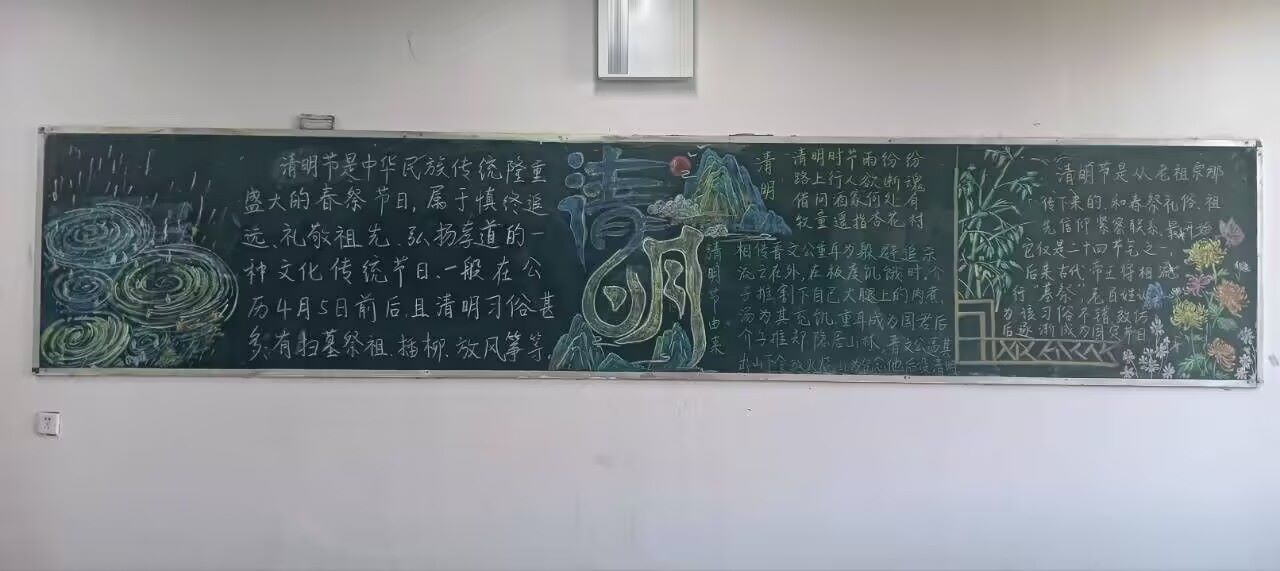 清明节是中华民族传统隆重
盛大的春祭节日，属于慎终追
远、礼敬祖先、弘扬孝道的一
种文化传统节日。一般在公
历4月5日前后，且清明习俗甚
多，有扫墓祭祖、插柳、放风筝等
清明
清明
清明时节雨纷纷
路上行人欲断魂
借问酒家何处有
牧童遥指杏花村
清明节由来
相传晋文公重耳为躲避追杀
流亡在外，在极度饥饿时，介
子推割下自己大腿上的肉煮
汤为其充饥，重耳成为国君后
介子推却隐居山林，晋文公逼其
出山下令放火
清明节是从老祖宗那
传下来的，和春祭礼俗、祖
先信仰紧密联系，最开始
它仅是二十四节气之一
后来古代帝王将相
行“墓祭”，老百姓认
为该习俗不错
后逐渐成为国家节日